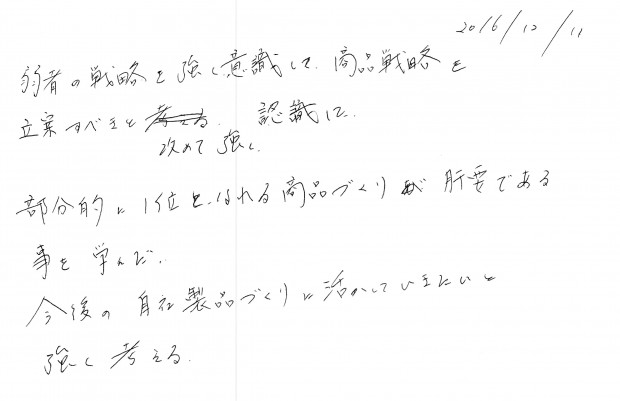 2016/12/11
弱者の戦略を強く意識して、商品戦略を
立案すべきと考える. 認識した.
改めて強く.
部分的に1位と.なれる商品づくりが肝要である
事を学んだ.
今後の自社製品づくりに活かしていきたいと
強く考える.